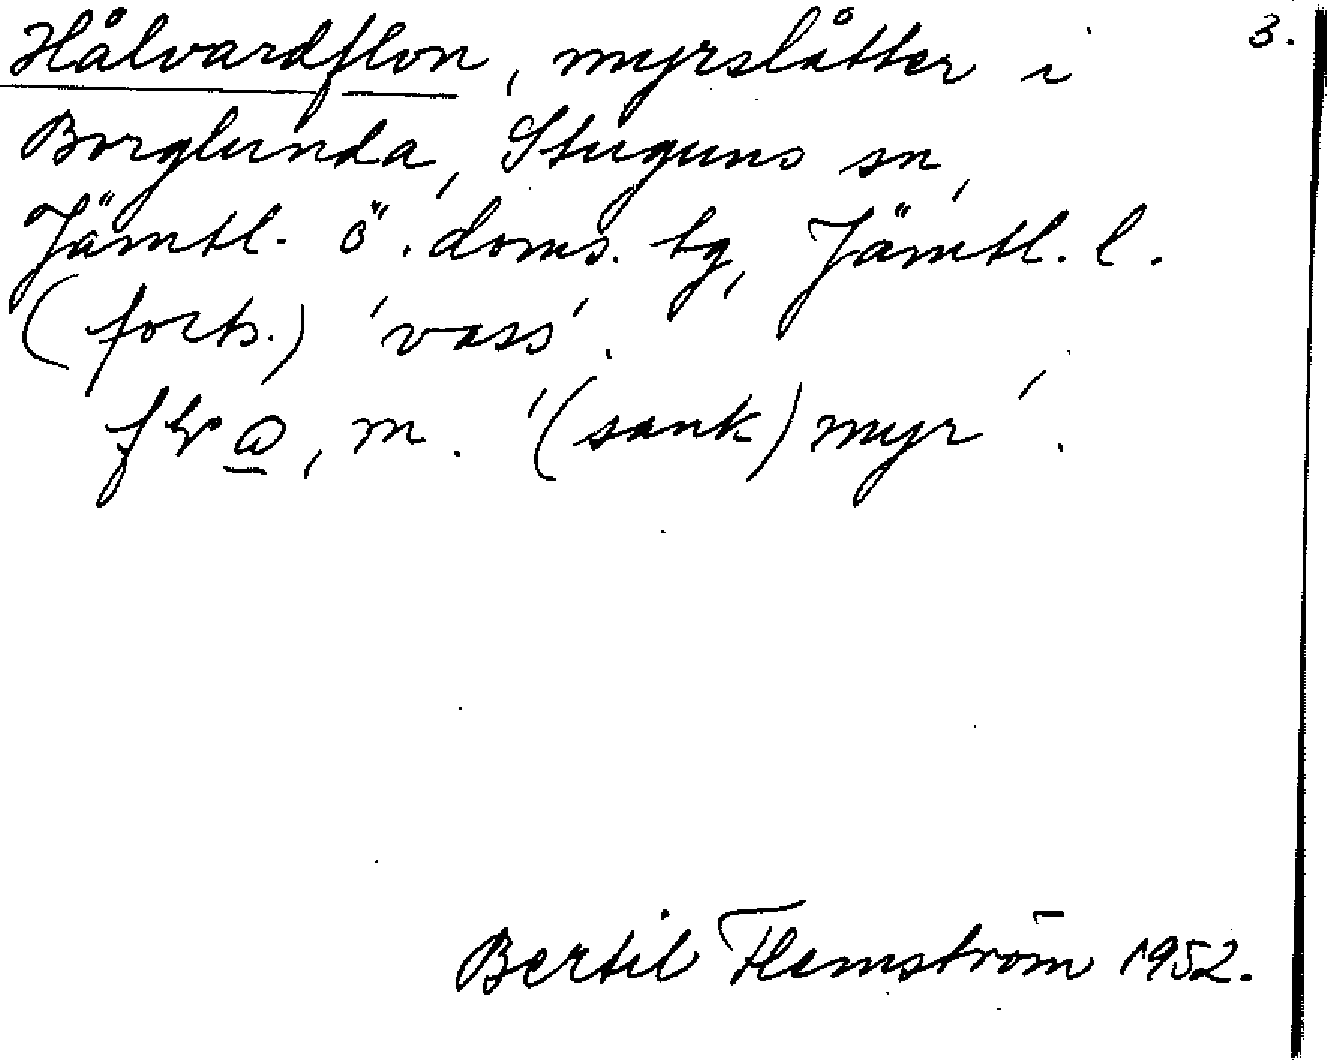 3.
Hålvardflon, myrslåtter i
Borglunda, Stuguns sn,
Jämtl. ö. doms. tg, Jämtl. l.
(forts.) 'vass'.
m. '(sank) myr'.
Bertil Flemström 1952.